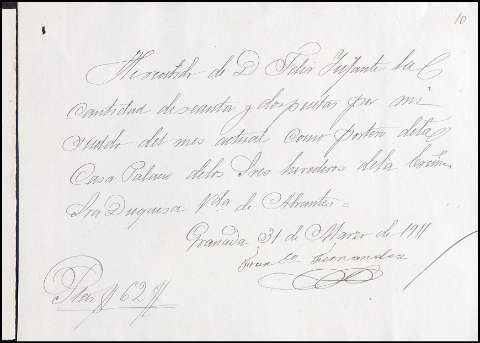 10
He recibido de D Felix Infante la
cantidad de sesenta y dos pesetas por mi
sueldo del mes actual como portero de la
Casa Palacio de los Sres herederos de la Excma
Sra Duquesa Vda de Abrantes =
Granada 31 de Marzo de 1911
Fernandez
Ptas // 62 //